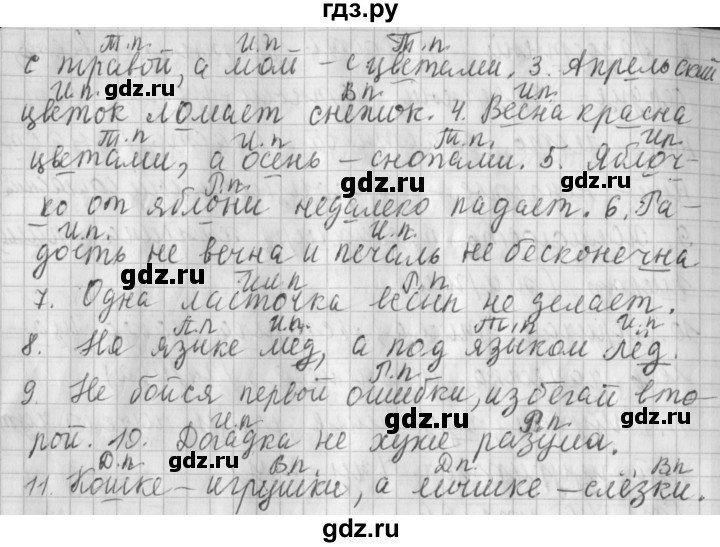 гдз.ру
Т.п. И.п Т.п.
с травой, а май – с цветами. 3. Апрельский
И.п. В.п. И.п.
цветок ломает снежок. 4. Весна красна
Т.п И.п Т.п. И.п.
цветами, а осень – снопами. 5. Яблоч-
gdz.ru
Р.п.
ко от яблони недалеко падает. 6. Ра-
И.п. И.п.
gdz.ru
дость не вечна и печаль не бесконечна
gdz.ru
И.п Р.п.
7. Одна ласточка весны не делает.
П.п И.п. Т.п И.п
8. На языке мёд, а под языком лёд.
gdz.ru
Р.п.
9. Не бойся первой ошибки, избегай вто-
gdz.ru gdz.ru
И.п Р.п.
рой. 10. Догадка не хуже разума.
Д.п. В.п. Д.п. В.п
11. Кошке – игрушки, а мышке – слёзки.
gdz.ru